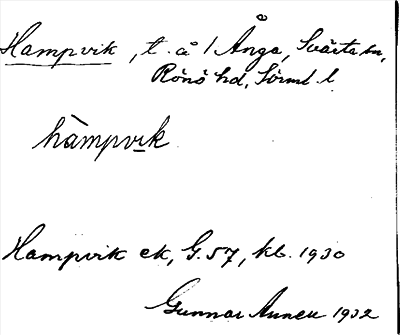 Hampvik, t. å / Ånga, Svärta sn,
Rönö hd, Sörml. l.
hàmpvi̲k
Hampvik ek, G. 57, kb. 1930
Gunnar Anneu 1932